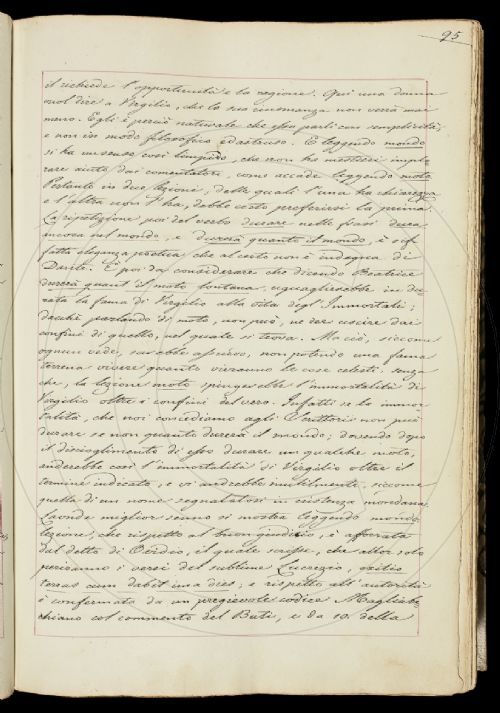 25
il richiede l'opportunità e la ragione. Qui una donna
vuol dire a Virgilio, che la sua rinomanza non verrà mai
meno. Egli è perciò naturale che essa parli con semplicità,
e non in modo filosofico ed astruso. E leggendo mondo
si ha un senso così limpido, che non ha mestieri implo
rare aiuto dai comentatori, come accade leggendo moto
Pertanto in due lezioni; delle quali l'una ha chiarezza
e l'altra non l'ha, debbe certo preferirsi la prima.
La ripetizione poi del verbo durare nelle frasi dura
ancora nel mondo, e durerà quanto il mondo, è sif
fatta eleganza poetica, che al certo non è indegna di
Dante. È poi da considerare che dicendo Beatrice
durerà quant' il moto lontana, uguaglierebbe in du
rata la fama di Virgilio alla vita degl'Immortali;
dacchè parlando di moto, non può, nè dee uscire dai
confini di quello, nel quale si trova. Ma ciò, siccome
ognun vede, sarebbe assurdo, non potendo una fama
terrena vivere quanto vivranno le cose celesti. Senza
che, la lezione moto spingerebbe l'immortalità di
Virgilio oltre i confini del vero. Infatti se la immor
talità, che noi concediamo agli Scrittori non può
durare se non quanto durerà il mondo; dovendo dopo
il discioglimento di esso durare un qualche moto,
anderebbe così l'immortalità di Virgilio oltre il
termine indicato, e vi andrebbe inutilmente, siccome
quella di un nome segnalatosi in esistenza mondana.
Laonde miglior senno si mostra leggendo mondo
lezione, che rispetto al buon giudizio, è afforzata
dal detto di Ovidio, il quale scrisse, che allor solo
periranno i versi del sublime Lucrezio, exitio
terras cum dabit una dies; e rispetto all'autorità
è confermata da un pregievole codice Magliabe
chiano col commento del Buti, e da 10. della